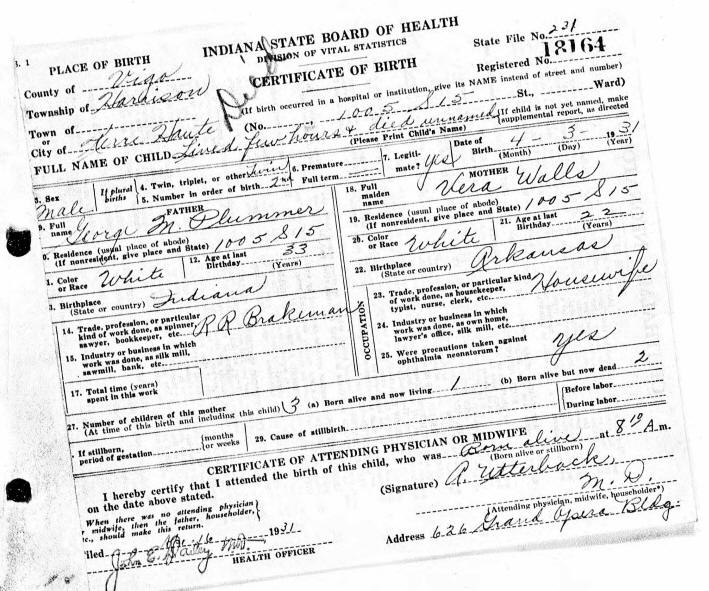 S. 1
INDIANA STATE BOARD OF HEALTH
DIVISION OF VITAL STATISTICS
CERTIFICATE OF BIRTH
State File No. 231
Registered No. 18164
PLACE OF BIRTH
County of Vigo
Township of Harrison
Died
Town of
or
City of Terre Haute
(If birth occurred in a hospital or institution, give its NAME instead of street and number)
(No. 1005 S 15 St., Ward)
FULL NAME OF CHILD Lived few hours & died unnamed
(Please Print Child's Name)
{If child is not yet named, make supplemental report, as directed
3. Sex Male
If plural births
4. Twin, triplet, or other twin
5. Number in order of birth 2nd
6. Premature
Full term
7. Legitimate? yes
Date of Birth 4 - 3 - 1931
(Month) (Day) (Year)
FATHER
9. Full name George M. Plummer
0. Residence (usual place of abode)
(If nonresident, give place and State) 1005 S 15
1. Color or Race White
12. Age at last Birthday 33 (Years)
3. Birthplace
(State or country) Indiana
14. Trade, profession, or particular
kind of work done, as spinner,
sawyer, bookkeeper, etc. R R Brakeman
15. Industry or business in which
work was done, as silk mill,
sawmill, bank, etc.
17. Total time (years)
spent in this work
MOTHER
18. Full maiden name Vera Walls
19. Residence (usual place of abode)
(If nonresident, give place and State) 1005 S 15
20. Color or Race White
21. Age at last Birthday 22 (Years)
22. Birthplace
(State or country) Arkansas
OCCUPATION
23. Trade, profession, or particular kind
of work done, as housekeeper,
typist, nurse, clerk, etc. Housewife
24. Industry or business in which
work was done, as own home,
lawyer's office, silk mill, etc.
25. Were precautions taken against
ophthalmia neonatorum? yes
27. Number of children of this mother
(At time of this birth and including this child) 3 (a) Born alive and now living 1 (b) Born alive but now dead 2
If stillborn,
period of gestation {months or weeks
29. Cause of stillbirth
{Before labor
During labor
CERTIFICATE OF ATTENDING PHYSICIAN OR MIDWIFE
I hereby certify that I attended the birth of this child, who was Born alive at 8 10 A. m.
(Born alive or stillborn)
on the date above stated.
When there was no attending physician
r midwife, then the father, householder,
tc., should make this return.
(Signature) R. Utterback,
M. D.
(Attending physician, midwife, householder*)
iled 1931
HEALTH OFFICER
Address 626 Grand Opera Bldg.